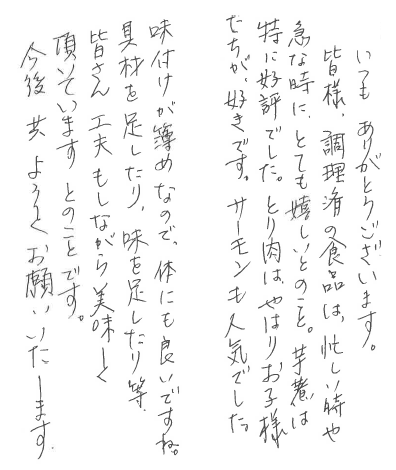 いつも ありがとうございます。
皆様、調理済の食品は、忙しい時や
急な時に、とても嬉しいとのこと。芋煮は
特に好評でした。とり肉は、やはりお子様
たちが、好きです。サーモンも人気でした。
味付けが薄めなので、体にも良いですね。
具材を足したり、味を足したり等、
皆さん 工夫もしながら美味しく
頂いています とのことです。
今後 共 よろしくお願いいたします。